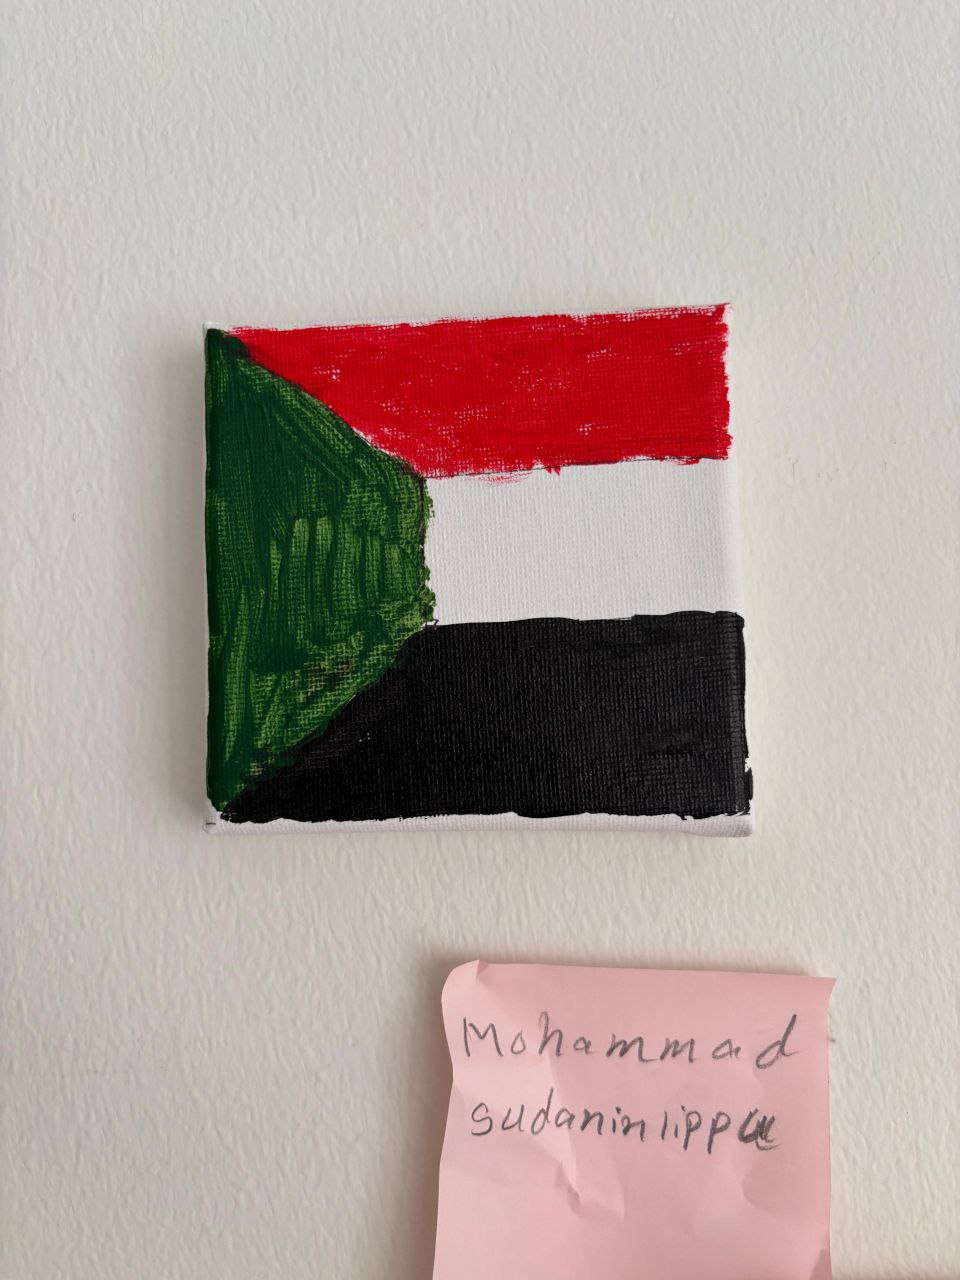 Mohammad
sudanin lippu